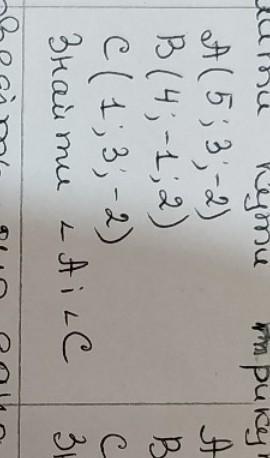 кути трикут
A(5;3;-2)
B(4;-1;2)
C(1;3;-2)
Знайти ∠A i ∠C
A
B
C
Зн